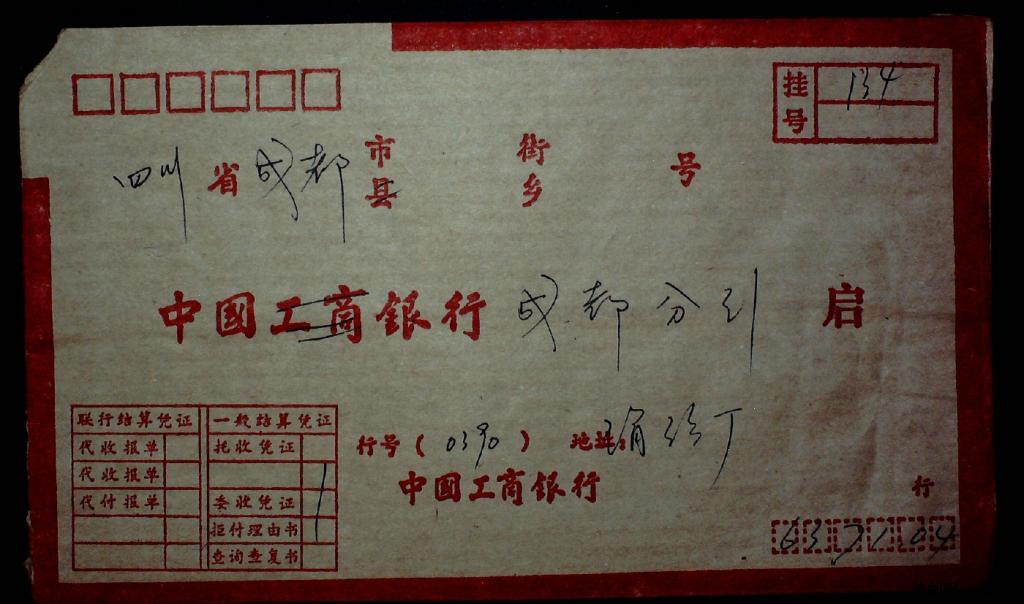 挂号 134
四川省成都市县 街乡 号
中國工商銀行成都分行 启
联行结算凭证 一般结算凭证
代收报单 托收凭证
代收报单
代付报单 委收凭证
拒付理由书
查询查复书
行号(0390) 地址:
中國工商銀行 行
637104